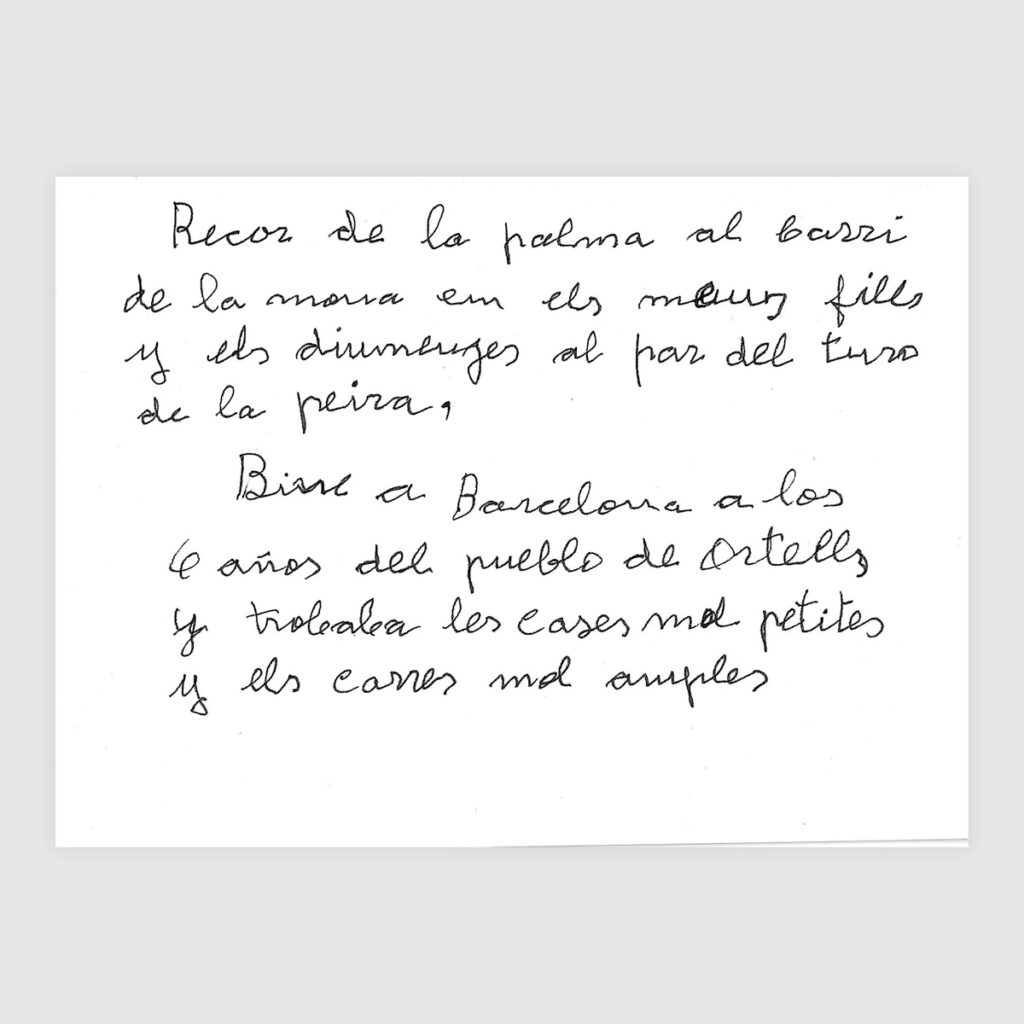 Recor de la palma al barri
de la mona em els meus fills
y els diumenges al par del turo
de la peira,
Bine a Barcelona a los
6 años del pueblo de Ortells
y trobaba les cases mol petites
y els carres mol amples